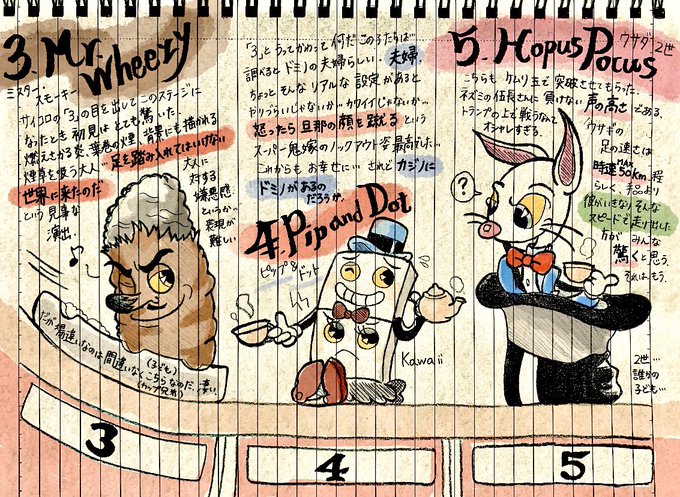 3. Mr. Wheezy
ミスター・スモーキー
サイコロの「3」の目を出してこのステージに
なったとき 初見は とても驚いた。
燃えさかる炎、葉巻の煙、背景にも描かれる
煙草を吸う大人…足を踏み入れてはいけない
世界に来たのだ
という見事な
演出。
大人に
対する
嫌悪感
というか…
表現が
難しい
だが場違いなのは間違いなくこちらなのだ、凄い
(子ども)
(カップ兄弟)
3
「3」とうってかわって何だこの子たちは…
調べるとドミノの夫婦らしい。夫婦。
ちょっとそんなリアルな設定があると
やりづらいじゃないか…カワイイじゃないか…
怒ったら旦那の顔を蹴る という
スーパー鬼嫁のノックアウト姿最高でした…
これからもお幸せに…されどカジノに
ドミノがあるの
だろうか。
4. Pip and Dot
ピップ&
ドット
Kawaii
4
5. Hopus Pocus
ウサダ2世
こちらもケムリ玉で突破させてもらった。
ネズミの伍長さんに負けない声の高さである。
トランプの上で戦うなんて
オシャレすぎる。
?
ウサギの
足の速さは
時速MAX50km程
らしく、手品より
僕がいきなりそんな
スピードで走り出した
方がみんな
驚くと思う。
それはもう。
2世…
誰かの
子ども…
5